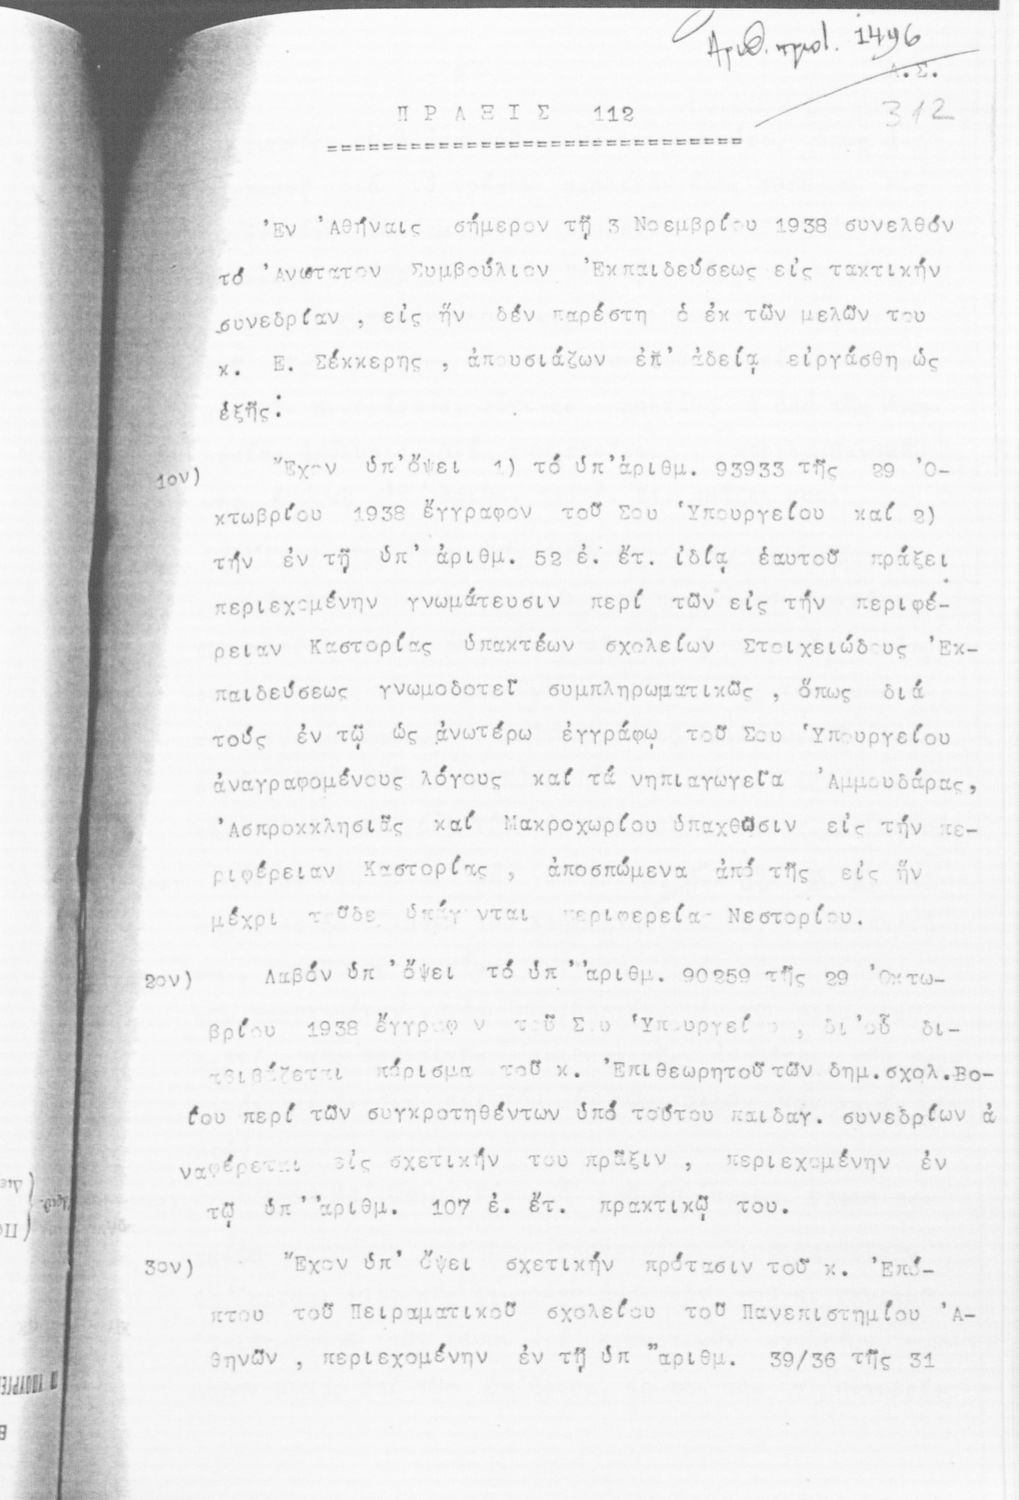 Ἀριθ. πρωτ. 1496
Α.Σ.
312
ΠΡΑΞΙΣ 112
Ἐν Ἀθήναις σήμερον τῇ 3 Νοεμβρίου 1938 συνελθόν
τό Ἀνώτατον Συμβούλιον Ἐκπαιδεύσεως εἰς τακτικήν
συνεδρίαν , εἰς ἥν δέν παρέστη ὁ ἐκ τῶν μελῶν του
κ. Ε. Σέκκερης , ἀπουσιάζων ἐπ' ἀδείᾳ εἰργάσθη ὡς
ἑξῆς:
1ον) Ἔχον ὑπ'ὄψει 1) τό ὑπ'ἀριθμ. 93933 τῆς 29 Ὀ-
κτωβρίου 1938 ἔγγραφον τοῦ Σου Ὑπουργείου καί 2)
τήν ἐν τῇ ὑπ' ἀριθμ. 52 ἐ. ἔτ. ἰδίᾳ ἑαυτοῦ πράξει
περιεχομένην γνωμάτευσιν περί τῶν εἰς τήν περιφέ-
ρειαν Καστορίας ὑπακτέων σχολείων Στοιχειώδους Ἐκ-
παιδεύσεως γνωμοδοτεῖ συμπληρωματικῶς , ὅπως διά
τούς ἐν τῷ ὡς ἀνωτέρω ἐγγράφῳ τοῦ Σου Ὑπουργείου
ἀναγραφομένους λόγους καί τά νηπιαγωγεῖα Ἀμμουδάρας,
Ἀσπροκκλησιᾶς καί Μακροχωρίου ὑπαχθῶσιν εἰς τήν πε-
ριφέρειαν Καστορίας , ἀποσπώμενα ἀπό τῆς εἰς ἥν
μέχρι τοῦδε ὑπάγονται περιφερείας Νεστορίου.
2ον) Λαβόν ὑπ 'ὄψει τό ὑπ''ἀριθμ. 90259 τῆς 29 Ὀκτω-
βρίου 1938 ἔγγραφον τοῦ Σου Ὑπουργείου , δι'οὗ δι-
αβιβάζεται πόρισμα τοῦ κ. Ἐπιθεωρητοῦ τῶν δημ.σχολ.Βο-
ΐου περί τῶν συγκροτηθέντων ὑπό τούτου παιδαγ. συνεδρίων ἀ
ναφέρεται εἰς σχετικήν του πρᾶξιν , περιεχομένην ἐν
τῷ ὑπ''ἀριθμ. 107 ἐ. ἔτ. πρακτικῷ του.
3ον) Ἔχον ὑπ' ὄψει σχετικήν πρότασιν τοῦ κ. Ἐπό-
πτου τοῦ Πειραματικοῦ σχολείου τοῦ Πανεπιστημίου Ἀ-
θηνῶν , περιεχομένην ἐν τῇ ὑπ "αριθμ. 39/36 τῆς 31